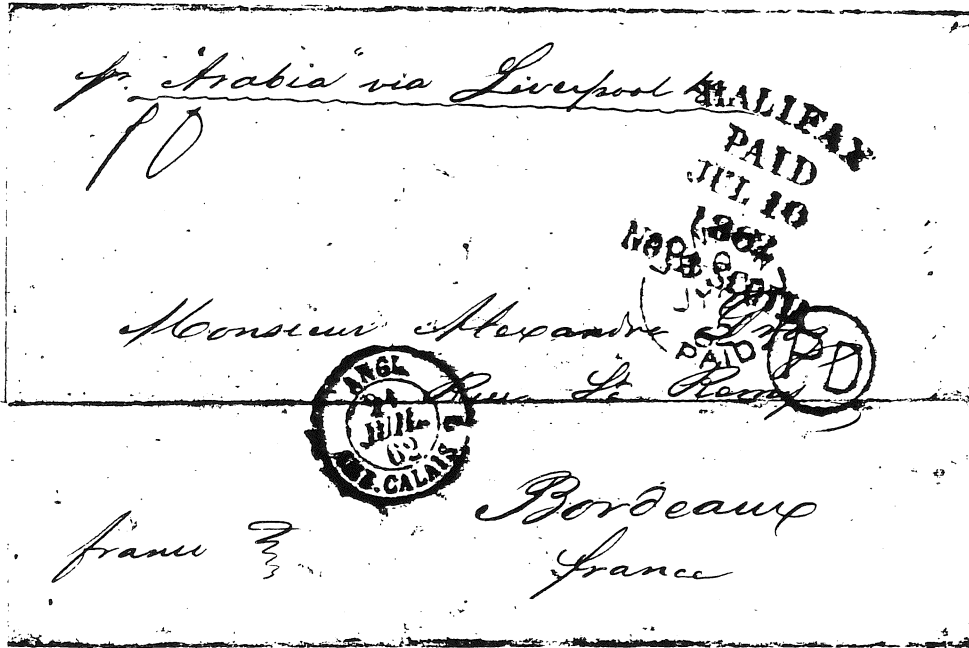 pr. "Arabia" via Liverpool
10
HALIFAX
PAID
JUL 10
1862
NOVA SCOTIA
PAID
PD
Monsieur Alexandre
Rue St. Remy
ANGL.
JUIL.
62
AMB. CALAIS
Bordeaux
france
france